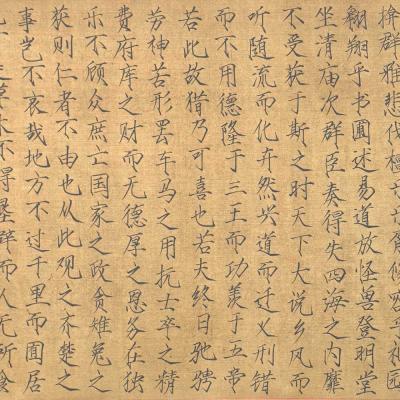 揜群雅悲伐檀乐乐胥修容乎礼园
翱翔乎书圃述易道放怪兽登明堂
坐清庙次群臣奏得失四海之内靡
不受获于斯之时天下大说乡风而
听随流而化卉然兴道而迁义刑错
而不用德隆于三王而功羡于五帝
若此故猎乃可喜也若夫终日驰骋
劳神苦形罢车马之用抏士卒之精
费府库之财而无德厚之恩务在独
乐不顾众庶亡国家之政贪雉兔之
获则仁者不由也从此观之齐楚之
事岂不哀哉地方不过千里而囿居
草木不得垦辟而人无所食